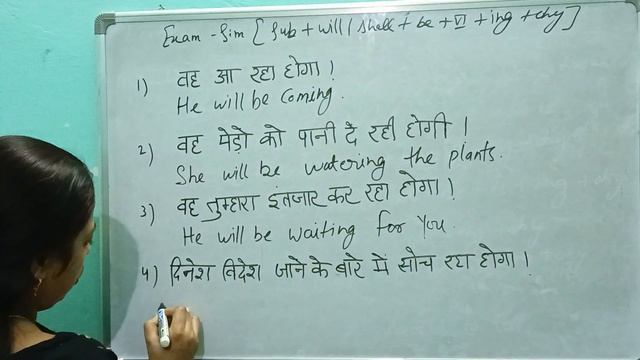 Exam - Sim [Sub + will / shall + be + V1 + ing + obj]
1) वह आ रहा होगा!
He will be coming.
2) वह पेड़ो को पानी दे रही होगी।
She will be watering the plants.
3) वह तुम्हारा इंतजार कर रहा होगा!
He will be waiting for you.
4) दिनेश विदेश जाने के बारे में सोच रहा होगा!